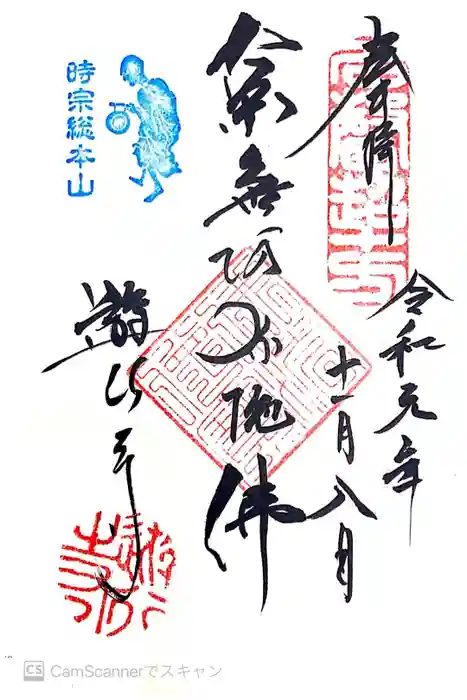 奉拝
令和元年
十一月八日
南無阿弥陀佛
時宗総本山
遊行寺
CS CamScannerでスキャン